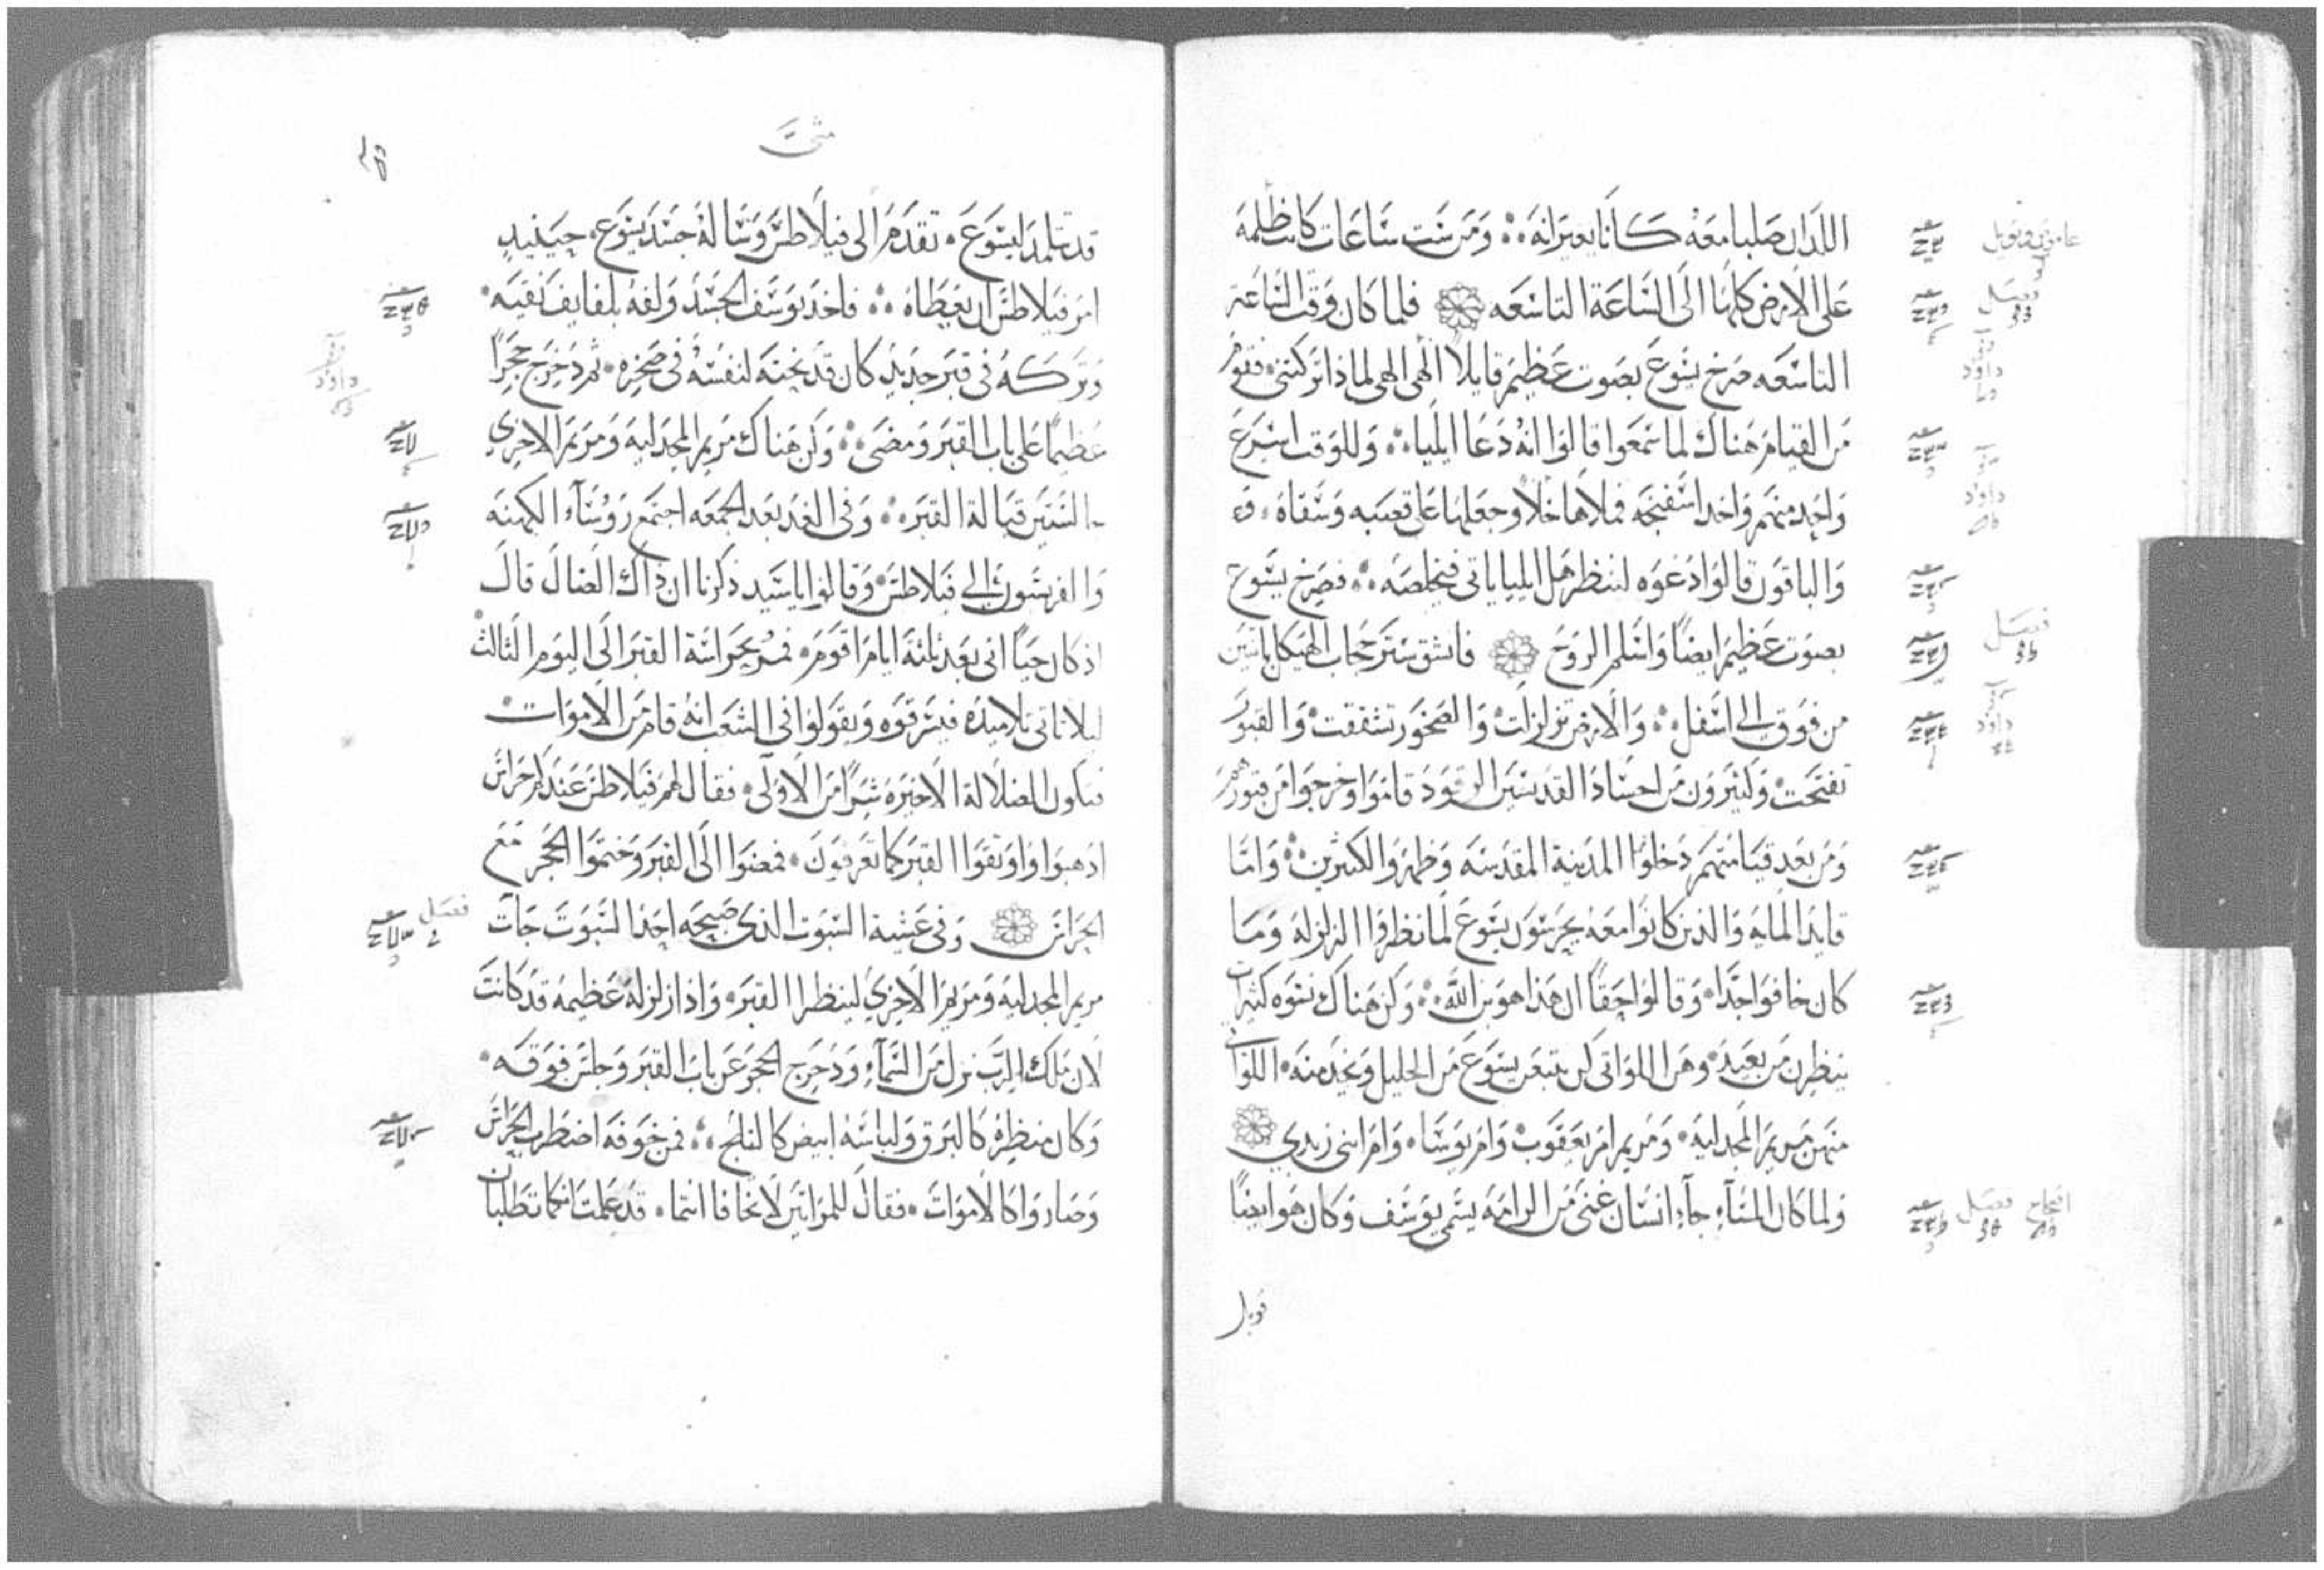 اللذان صلبا معه كانا يعيرانه ومن ست ساعات كانت ظلمه
على الارض كلها الى الساعة التاسعه فلما كان وقت الساعة
التاسعه صرخ يسوع بصوت عظيم قايلا الهي الهي لماذا تركتني فقوم
من القيام هناك لما سمعوا قالوا انه دعا ايليا وللوقت اسرع
واحد منهم واخذ اسفنجه فملاها خلا وجعلها على قصبه وسقاه
والباقون قالوا دعوه لننظر هل ايليا ياتي فيخلصه فصرخ يسوع
بصوت عظيم ايضا واسلم الروح فانشق ستر حجاب الهيكل باثنين
من فوق الى اسفل والارض تزلزلت والصخور تشققت والقبور
تفتحت وكثيرون من اجساد القديسين الرقود قاموا وخرجوا من قبورهم
ومن بعد قيامتهم دخلوا المدينة المقدسه وظهروا لكثيرين واما
قايد المايه والذين كانوا معه يحرسون يسوع لما نظروا الزلزله وما
كان خافوا جدا وقالوا حقا ان هذا هو بن الله وكن هناك نسوه كثيرات
ينظرن من بعيد وهن اللواتي كن يتبعن يسوع من الجليل ويخدمنه اللوات
منهن مريم المجدليه ومريم ام يعقوب وام يوسا وام ابني زبدي
ولما كان المساء جاء انسان غني من الرامه يسمى يوسف وكان هو ايضا
متى
قد تلمذ ليسوع تقدم الى فيلاطس وساله جسد يسوع حينيذ
امر فيلاطس ان يعطاه فاخذ يوسف الجسد ولفه بلفايف نقيه
وتركه في قبر جديد كان قد نحته لنفسه في صخره ثم دحرج حجرا
عظيما على باب القبر ومضى وكن هناك مريم المجدليه ومريم الاخرى
جالستين قبالة القبر وفي الغد بعد الجمعه اجتمع روساء الكهنه
والفريسون الى فيلاطس وقالوا يا سيد ذكرنا ان ذاك الضال قال
اذ كان حيا اني بعد ثلثة ايام اقوم فمر بحراسة القبر الى اليوم الثالث
ليلا تاتي تلاميذه فيسرقوه ويقولوا في الشعب انه قام من الاموات
فتكون الضلالة الاخيره شرا من الاولى فقال لهم فيلاطس عندكم حراس
اذهبوا واوثقوا القبر كما تعرفون فمضوا الى القبر وختموا الحجر مع
الحراس وفي عشية السبوت الذي صبيحه احد السبوت جات
مريم المجدليه ومريم الاخرى لينظرا القبر واذا زلزلة عظيمه قد كانت
لان ملاك الرب نزل من السماء ودحرج الحجر عن باب القبر وجلس فوقه
وكان منظره كالبرق ولباسه ابيض كالثلج فمن خوفه اضطرب الحراس
وصاروا كالاموات فقال للمراتين لا تخافا انتما قد علمت انكما تطلبان